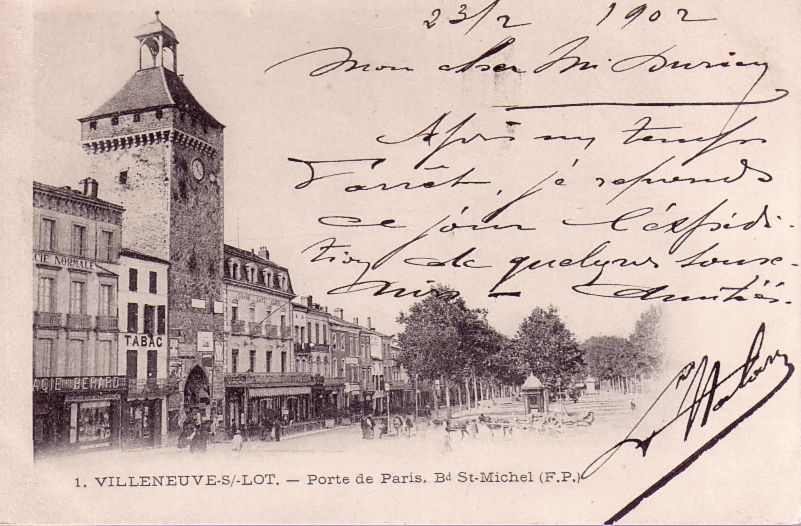 23/2 1902
Mon cher Mr Duriez
Après un temps
d'arrêt, je reprends
ce jour l'éxpédi-
tion de quelques souve-
nirs - Amitiés.
CIE NORMALE
TABAC
ACIE BERARD
1. VILLENEUVE-S/-LOT. — Porte de Paris. Bd St-Michel (F.P.)